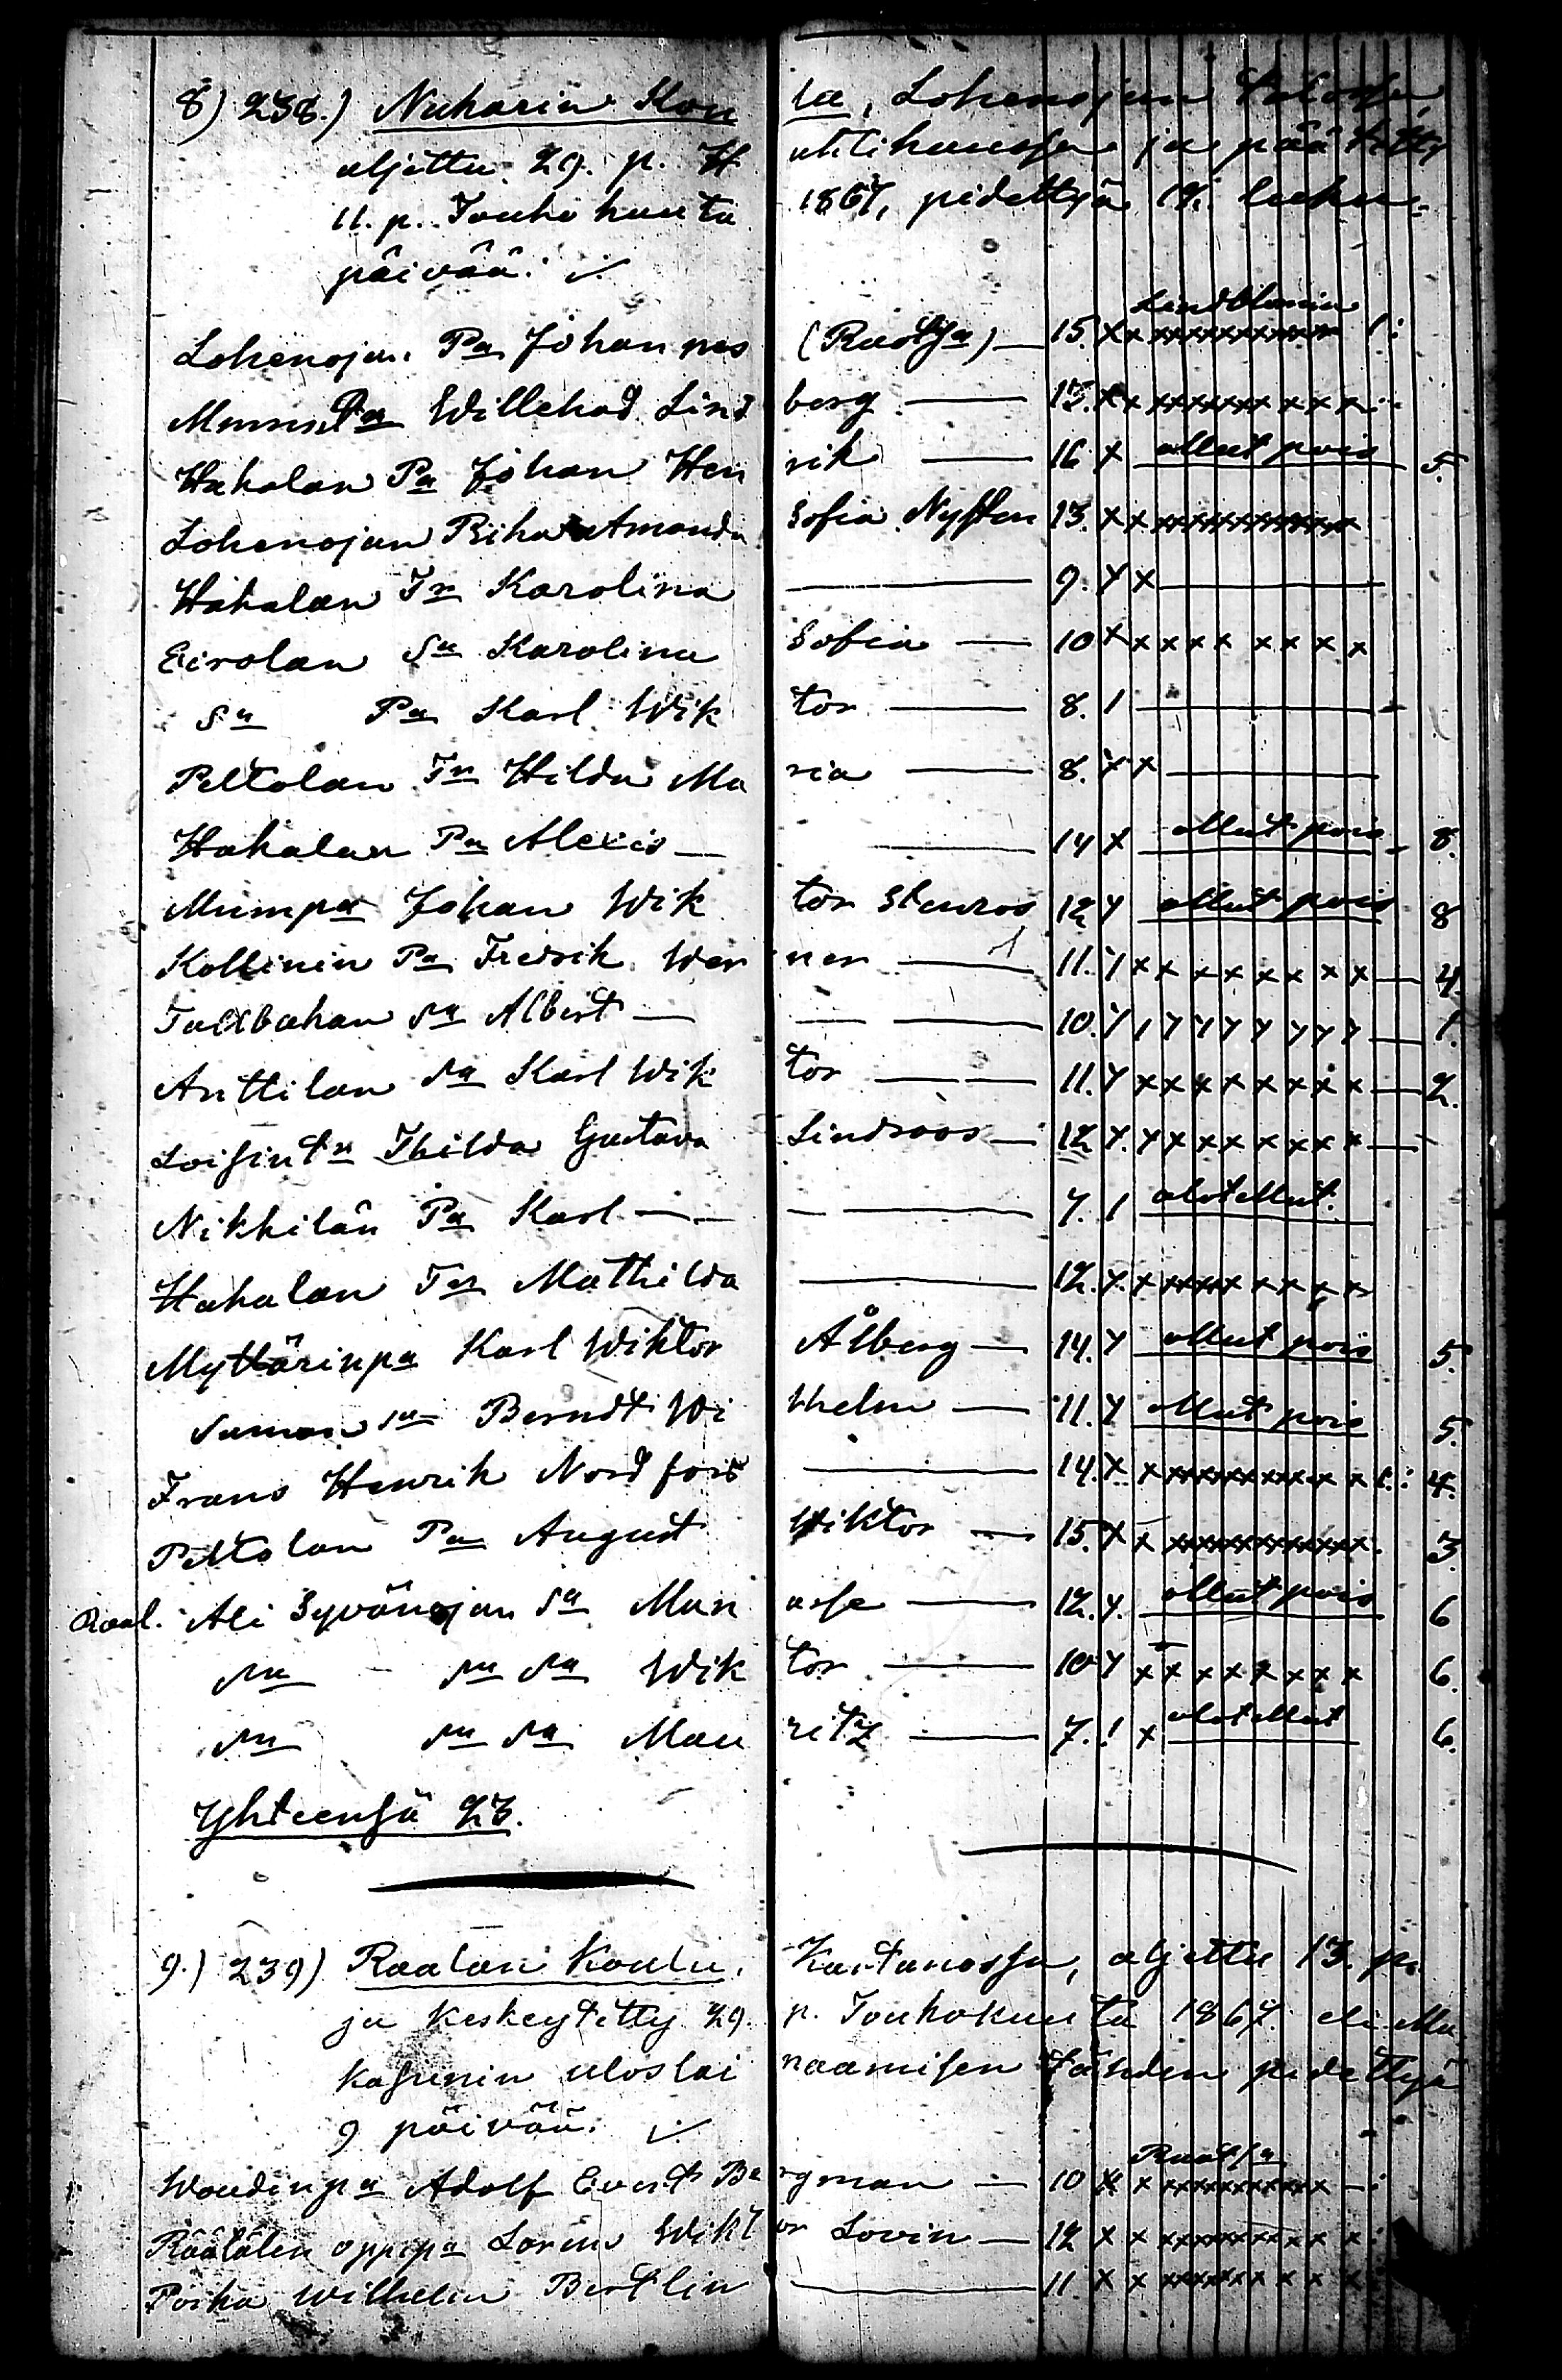 8) 238.) Nuharin Koulu, Lohenojan talossa,
aljettu 29. p. Huhtikuussa ja päätetty
11. p. Toukokuuta 1867, pidettyä 12. luku-
päivää.
Lindblomin
Lohenojan Pa Johannes (Ruotsa) — 15. x x xxxxxxxxxxx
Pa Willehad Lindberg — 15. x x xxxxxxx x x x
Hakalan Pa Johan Henrik — 16 x ollut pois 5.
Lohenojan Piika Amanda Sofia Nysten 13. x x xxxxxxxxxxx
Hakalan Tr Karolina — 9. x x —
Eirolan Sa Karolina Sofia — 10 x x x x x x x x x
Sa Pa Karl Wiktor — 8. 1 —
Peltolan Tr Hilda Maria — 8. x x —
Hakalan Pa Alexis — 14 x ollut pois 8.
Mumpa Johan Wiktor Stenroos 12 x ollut pois 8
Kollinin Pa Fredrik Werner — 11. x x x x x x x x x — 4.
Tallbakan sa Albert — 10. — 1.
Anttilan sa Karl Wiktor — 11. x x x x x x x x x — 2.
Thilda Gustava Lindroos — 12 x x x x x x x x x —
Nikkilän Pa Karl — 7. 1 alotellut.
Hakalan Tr Mathilda — 12. x x xxxxx x x x x
Myttärinpa Karl Wiktor Ålberg — 14. x ollut pois 5.
Saman sa Berndt Wilhelm — 11. x ollut pois 5.
Frans Henrik Nordfors — 14. x x xxxxxxxxx x x 4.
Peltolan Pa August Wiktor — 15. x x xxxxxxxxxxx. 3
Raal. Ali Syvänojan sa Manasse — 12. x. ollut pois 6
sa sa sa Wiktor — 10 x x x x x x x x x 6.
sa sa sa Mauritz — 7. 1 x alotellut 6.
Yhteensä 23.
9.) 239) Raalan Koulu, Kartanossa, aljettu 13. p.
ja keskeytetty 29. p. Toukokuuta 1867
uloslainaamisen tähden pidettyä
9 päivää.
Ruotsa
Woudinpa Adolf Evert Bergman — 10 x x xxxxxxxxxxx —
Räätälin oppipa Lorens Wiktor Lovin — 12 x x xxxxxxxx x x x
Poika Wilhelm Bertlin — 11 x x xxxxxx x x x x